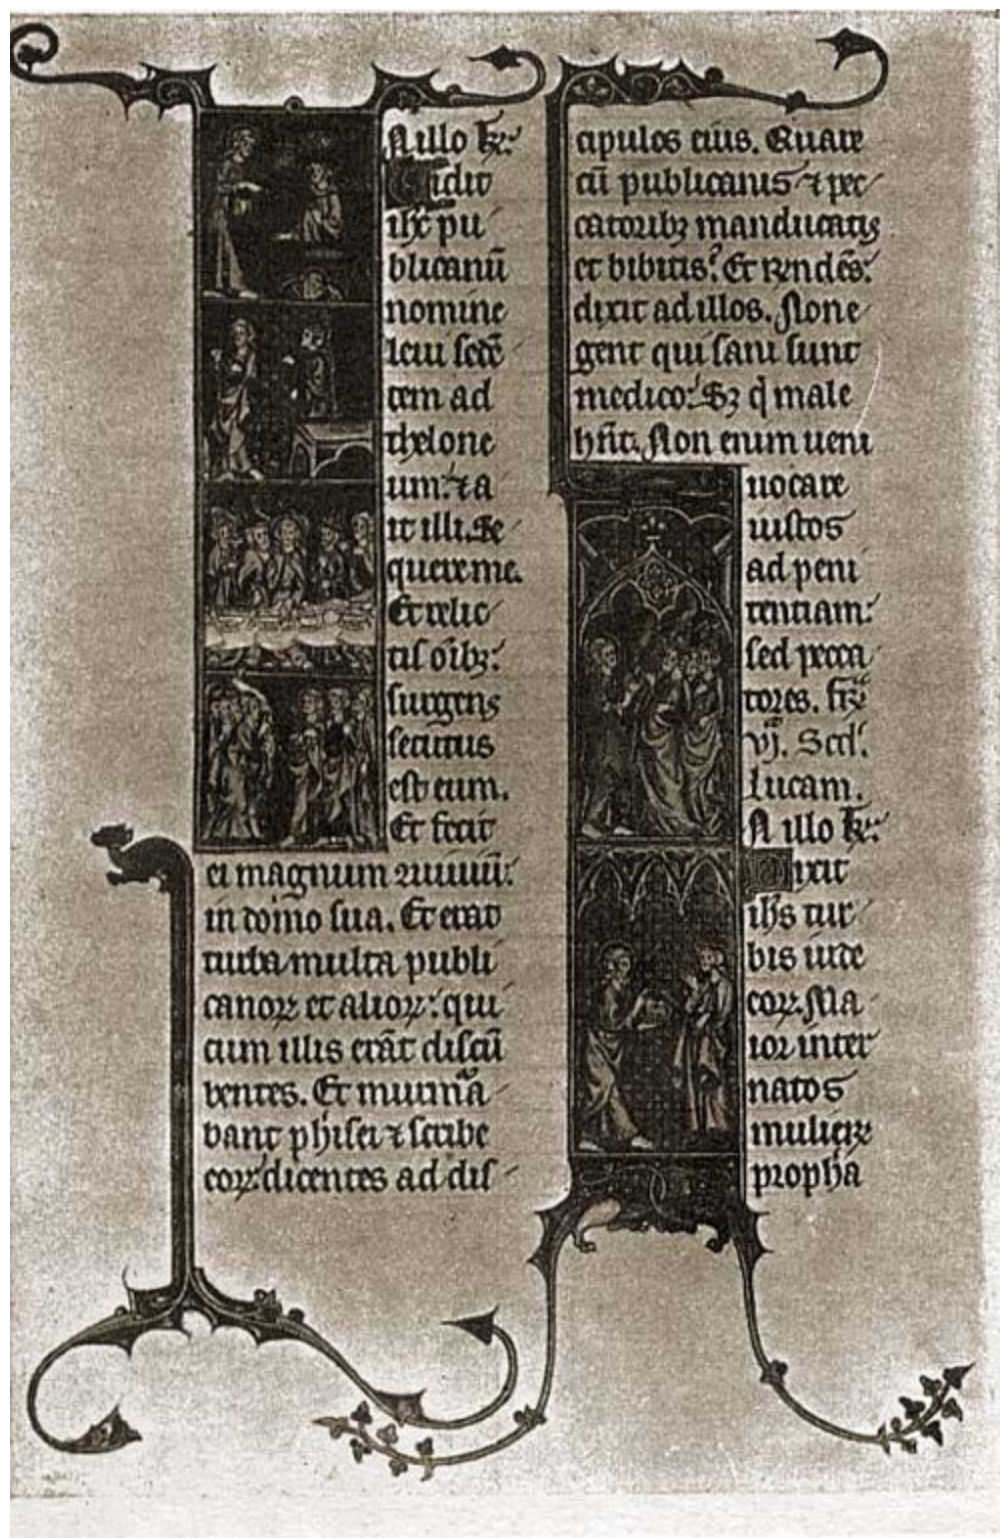 N illo t͛r:
Vidit
ihc pu
blicanū
nomine
leui sedē
tem ad
thelone
um: ⁊ a
it illi. Se
quere me.
Et relic
tis oīb;:
surgens
secutus
est eum.
Et fecit
ei magnum
in domo sua. Et erat
turba multa publi
canoꝝ et alioꝝ: qui
cum illis erāt discū
bentes. Et murmᵃa
bant phisei ⁊ scribe
eoꝝ dicentes ad dis
cipulos eius. Quare
cū publicanis ⁊ pec
catorib; manducatis
et bibitis? Et rn̄dēs:
dixit ad illos. Non e
gent qui sani sunt
medico: Sꝫ q̄ male
hn̄t. Non enim ueni
uocare
iustos
ad peni
tentiam:
sed pecca
tores. fr̄
vj. Scd'.
Lucam.
N illo t͛r:
Dixit
ihs tur
bis iude
oꝝ. Ma
ior inter
natos
mulieꝝ
propha